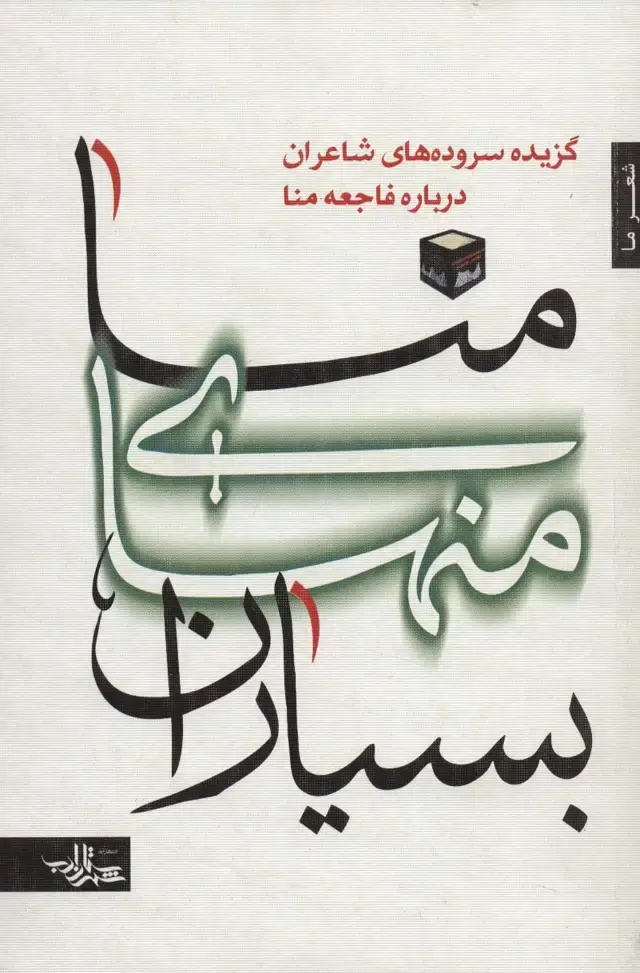 گزیده سروده‌های شاعران
درباره فاجعه منا
شعر ما
منا
منهای
بسیاران
شهرستان ادب